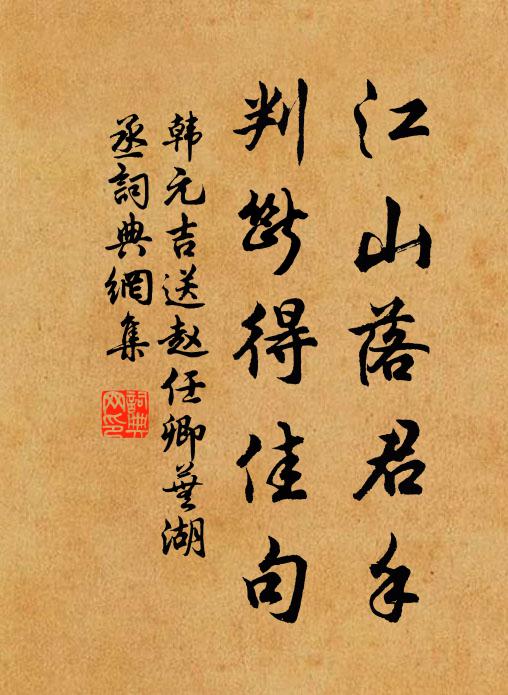 江山落君手
判斷得佳句
韩元吉送赵任卿蕪湖
丞詞典網集
詞典
网印